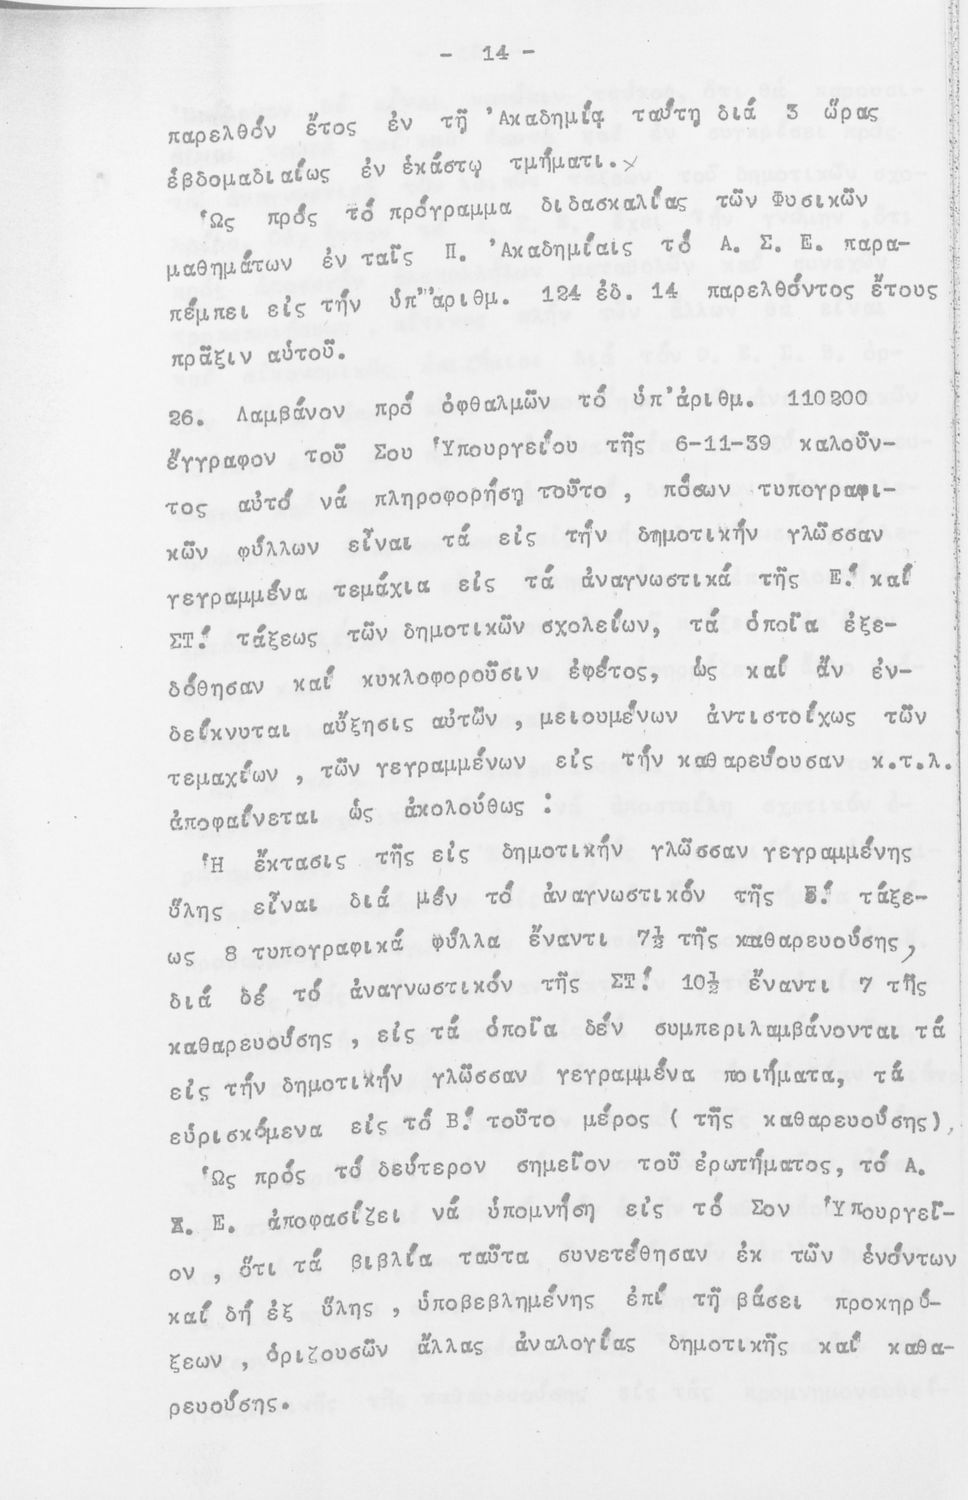 - 14 -
παρελθόν ἔτος ἐν τῇ Ἀκαδημίᾳ ταύτῃ διά 3 ὥρας
ἑβδομαδιαίως ἐν ἑκάστῳ τμήματι.
Ὡς πρός τό πρόγραμμα διδασκαλίας τῶν Φυσικῶν
μαθημάτων ἐν ταῖς Π. Ἀκαδημίαις τό Α. Σ. Ε. παρα-
πέμπει εἰς τήν ὑπ'ἀριθμ. 124 ἐδ. 14 παρελθόντος ἔτους
πρᾶξιν αὐτοῦ.
26. Λαμβάνον πρό ὀφθαλμῶν τό ὑπ'ἀριθμ. 110200
ἔγγραφον τοῦ Σου Ὑπουργείου τῆς 6-11-39 καλοῦν-
τος αὐτό νά πληροφορήσῃ τοῦτο, πόσων τυπογραφι-
κῶν φύλλων εἶναι τά εἰς τήν δημοτικήν γλῶσσαν
γεγραμμένα τεμάχια εἰς τά ἀναγνωστικά τῆς Ε.' καί
ΣΤ.' τάξεως τῶν δημοτικῶν σχολείων, τά ὁποῖα ἐξε-
δόθησαν καί κυκλοφοροῦσιν ἐφέτος, ὡς καί ἄν ἐν-
δείκνυται αὔξησις αὐτῶν, μειουμένων ἀντιστοίχως τῶν
τεμαχίων, τῶν γεγραμμένων εἰς τήν καθαρεύουσαν κ.τ.λ.
ἀποφαίνεται ὡς ἀκολούθως :
Ἡ ἔκτασις τῆς εἰς δημοτικήν γλῶσσαν γεγραμμένης
ὕλης εἶναι διά μέν τό ἀναγνωστικόν τῆς Ε.' τάξε-
ως 8 τυπογραφικά φύλλα ἔναντι 7½ τῆς καθαρευούσης,
διά δέ τό ἀναγνωστικόν τῆς ΣΤ.' 10½ ἔναντι 7 τῆς
καθαρευούσης, εἰς τά ὁποῖα δέν συμπεριλαμβάνονται τά
εἰς τήν δημοτικήν γλῶσσαν γεγραμμένα ποιήματα, τά
εὑρισκόμενα εἰς τό Β.' τοῦτο μέρος ( τῆς καθαρευούσης),
Ὡς πρός τό δεύτερον σημεῖον τοῦ ἐρωτήματος, τό Α.
Σ. Ε. ἀποφασίζει νά ὑπομνήσῃ εἰς τό Σον Ὑπουργεῖ-
ον, ὅτι τά βιβλία ταῦτα συνετέθησαν ἐκ τῶν ἐνόντων
καί δή ἐξ ὕλης, ὑποβεβλημένης ἐπί τῇ βάσει προκηρύ-
ξεων, ὁριζουσῶν ἄλλας ἀναλογίας δημοτικῆς καί καθα-
ρευούσης.